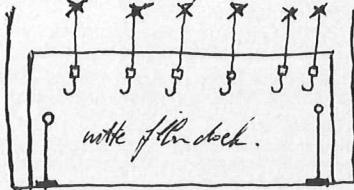 witte filmdoek.